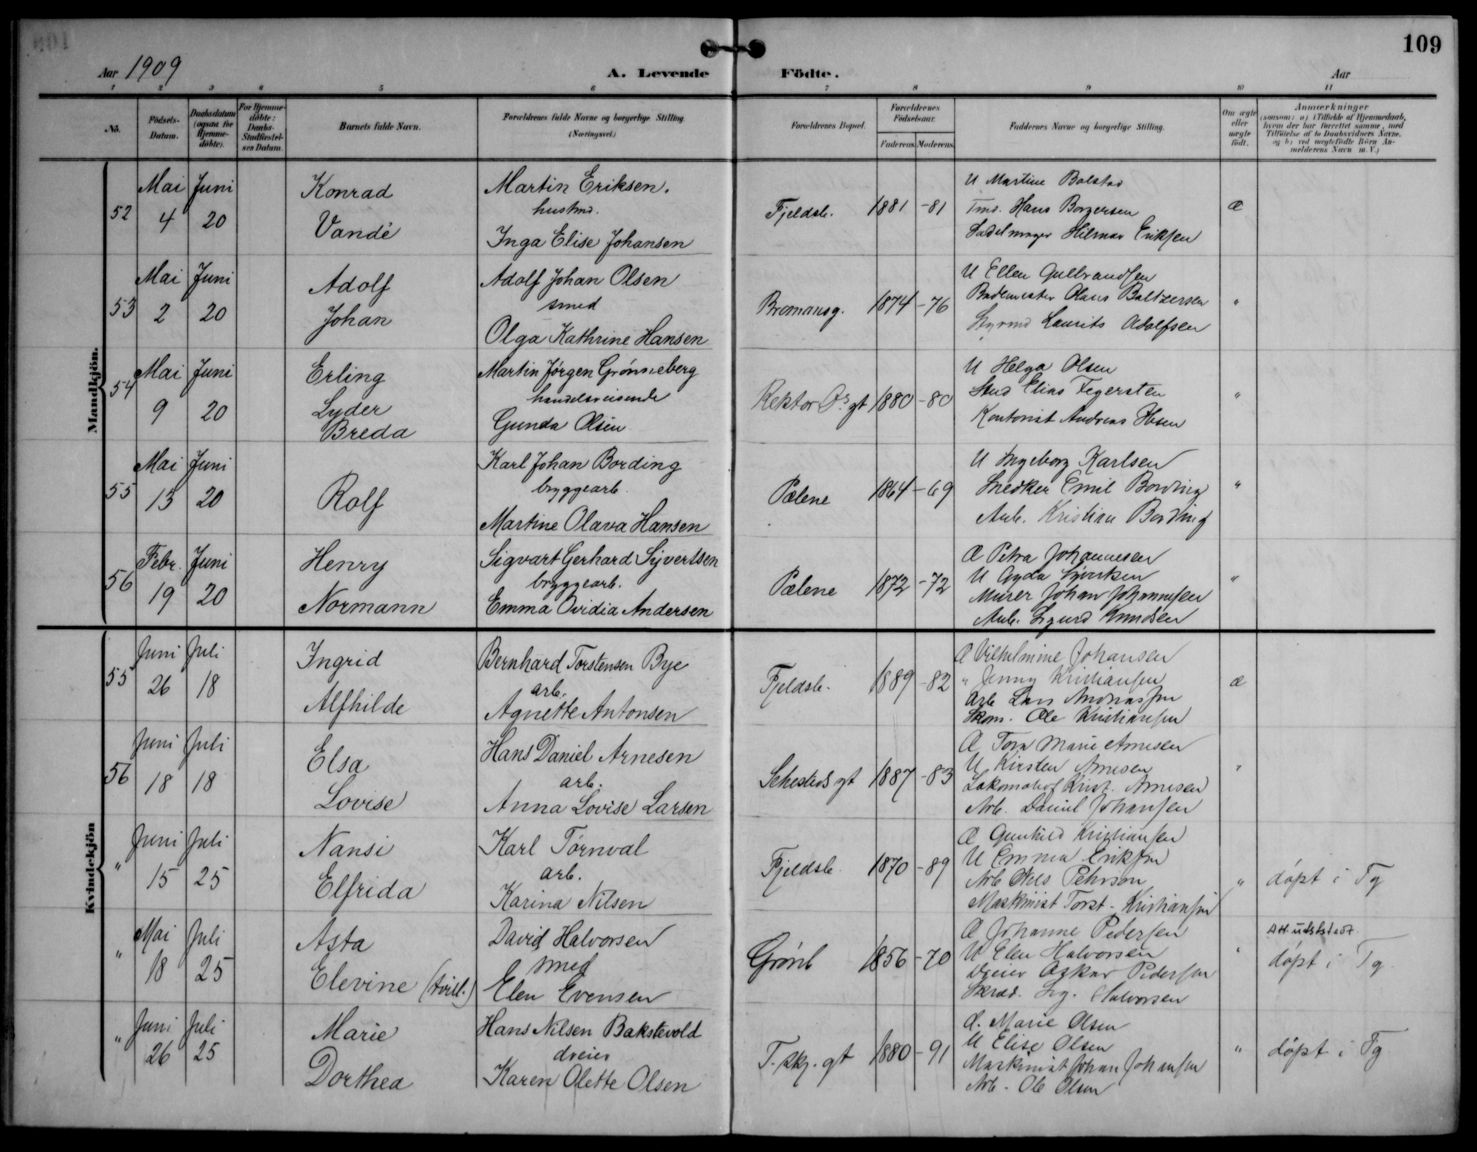 109
Aar 1909
A. Levende Fødte.
Aar
1 2 3 4 5 6 7 8 9 10 11
No.
Fødsels-Datum.
Daabsdatum (ogsaa for Hjemme-døbte).
For Hjemme-døbte: Daabs-Stadfæstel-ses Datum.
Barnets fulde Navn.
Forældrenes fulde Navne og borgerlige Stilling (Næringsvei)
Forældrenes Bopæl.
Forældrenes Fødselsaar.
Faderens. Moderens.
Faddernes Navne og borgerlige Stilling.
Om ægte eller uægte født.
Anmærkninger (saasom: a) i Tilfælde af Hjemmedaab, hvem der har forrettet samme, med Tilføielse af to Daabsvidners Navne, og b) ved uægtefødte Børn An-melderens Navn m. V.)
Mandkjøn.
52 Mai 4 Juni 20
Konrad
Vandé
Martin Eriksen.
husmd.
Inga Elise Johansen
Fjeldsb. 1881 -81
U Martine Bolstad
Tms. Hans Borgersen
Sadelmager Hilmar Eriksen
Æ
53 Mai 2 Juni 20
Adolf
Johan
Adolf Johan Olsen
smed
Olga Kathrine Hansen
Bromansg. 1874 -76
U Ellen Gulbrandsen
Bademester Olaus Baltzersen
Styrmd Laurits Adolfsen
"
54 Mai 9 Juni 20
Erling
Lyder
Breda
Martin Jørgen Grønneberg
handelsreisende
Gunda Olsen
Rektor Ø's gt 1880 -80
U Helga Olsen
Stud Elias Fegersten
Kontorist Andreas Ibsen
"
55 Mai 13 Juni 20
Rolf
Karl Johan Bording
bryggearb.
Martine Olava Hansen
Pælene 1864 -69
U Ingeborg Karlsen
Snedker Emil Bording
Arb. Kristian Bording
"
56 Febr. 19 Juni 20
Henry
Normann
Sigvart Gerhard Syvertsen
bryggearb.
Emma Ovidia Andersen
Pælene 1872 -72
Æ Petra Johannesen
U Agda Syvertsen
Murer Johan Johannesen
Arb. Sigurd Knudsen
"
Kvindekjøn
55 Juni 26 Juli 18
Ingrid
Alfhilde
Bernhard Torstensen Bye
arb.
Agnette Antonsen
Fjeldsb. 1889 -82
Æ Vilhelmine Johansen
" Jenny Kristiansen
Arb Lars Andreassen
Skom. Ole Kristiansen
æ
56 Juni 18 Juli 18
Elsa
Lovise
Hans Daniel Arnesen
arb.
Anna Lovise Larsen
Sehesteds gt 1887 -83
Æ Tora Marie Arnesen
U Kirsten Arnesen
Lokomotivf Krist. Arnesen
Arb. Daniel Johansen
"
" Juni 15 Juli 25
Nansi
Elfrida
Karl Tørnval
arb.
Karina Nilsen
Fjeldsb. 1870 -89
Æ Gunhild Kristiansen
U Emma Eriksen
Arb Nils Pehrson
Maskinist Torst. Kristiansen
" døpt i Tg
" Mai 18 Juli 25
Asta
Elevine (tvill.)
David Halvorsen
smed
Elen Evensen
Grønb 1856 -70
Æ Johanne Pedersen
U Elen Halvorsen
Dreier Oskar Pedersen
Skræd. Sig. Halvorsen
" Att utstedt
døpt i Tg
" Juni 26 Juli 25
Marie
Dorthea
Hans Nilsen Bakstevold
dreier
Karen Olette Olsen
T. skj. gt 1880 -91
Æ. Marie Olsen
U Elise Olsen
Maskinist Johan Johansen
Arb. Ole Olsen
" døpt i Tg